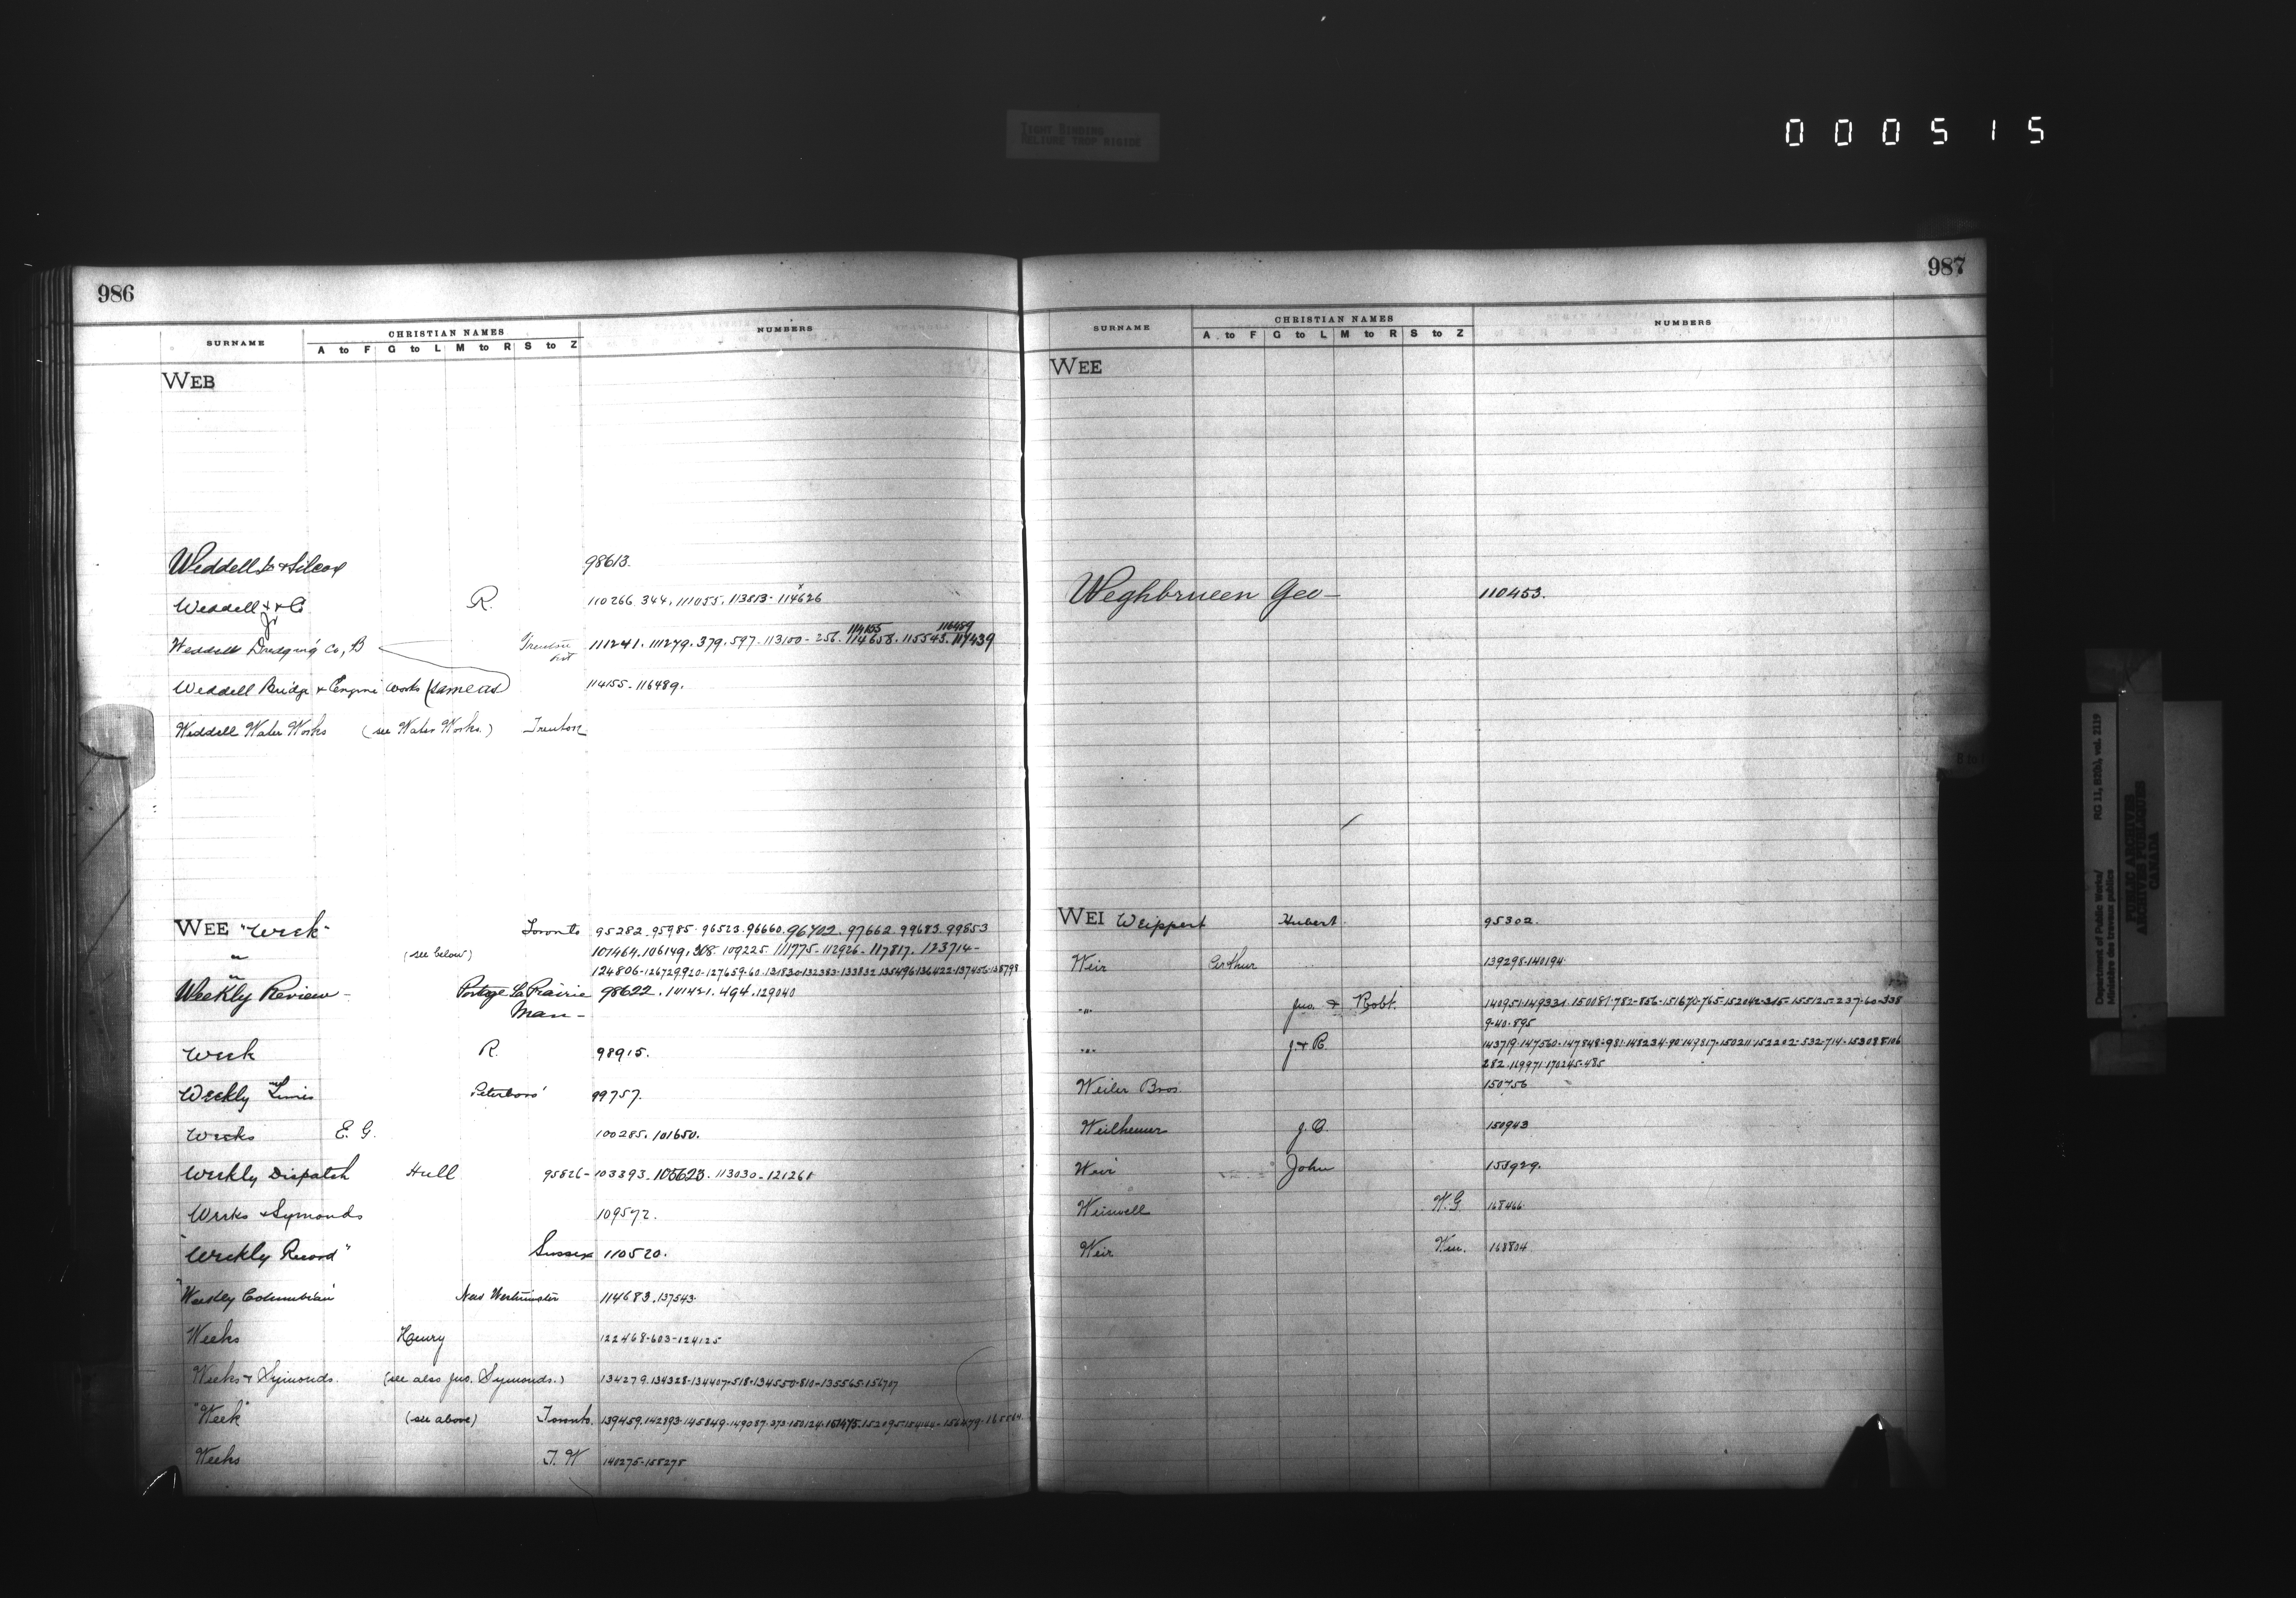 000515
TIGHT BINDING
RELIURE TROP RIGIDE
986
SURNAME CHRISTIAN NAMES NUMBERS
A to F G to L M to R S to Z
WEB
Weddell & Silcox 98613.
Weddell Jr & Co R. 110266 344. 111055. 113813-114626
114155 116489
Weddell Dredging Co, B Trenton Ont 111241. 111279. 379. 597. 113100-256. 114658. 115545. 117439
Weddell Bridge & Engine Works (same as) 114155-116489.
Weddell Water Works (see Water Works.) Trenton
WEE "Week" Toronto 95282. 95985. 96523. 96660. 96702. 97662. 99683. 99853
" (see below) 101464. 106149. 308. 109225. 111775-112926-117817. 123714-
" 124806-126729.920-127659-60-131830-132383-133832
Weekly Review- Portage La Prairie Man- 98622. 101421. 494. 129040
Week R. 98915.
Weekly Times Peterboro' 99757.
Weeks E. G. 100285. 101650.
Weekly Dispatch Hull 95826-103393. 105623. 113030-121261
Weeks & Symonds 109572.
"Weekly Record" Sussex 110520.
"Weekly Columbian" New Westminster 114683. 137543.
Weeks Henry 122468-603-124125
Weeks & Symonds. (see also Jno. Symonds.) 134279. 134328-134407-518-134550-810-135565-156707
"Week" (see above) Toronto. 139459. 142893. 145849. 149087
Weeks T. W 140275-155275
987
SURNAME CHRISTIAN NAMES NUMBERS
A to F G to L M to R S to Z
WEE
Weghbrueen Geo- 110453.
WEI Weippert Hubert 95302.
Weir Arthur 139298-140194
" Jno. & Robt. 140951-149331-150081-782-856-151670-765-152042-315-155125-237-60-338
9-40-895
" J. & R. 143719-147560-147848-981-148234
282. 169971-170245-485
Weiler Bros. 150756
Weilhemer J. O. 150943
Weir John 153929.
Weiswell W. G. 168466
Weir Wm. 168804
Department of Public Works/ RG 11, B2(b), vol. 2119
Ministère des travaux publics
PUBLIC ARCHIVES
ARCHIVES PUBLIQUES
CANADA